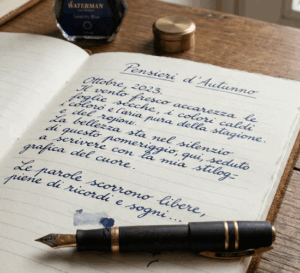 WATERMAN
Serenity Blue
Pensieri d'Autunno
Ottobre, 2023.
Il vento fresco accarezza le
foglie secche, i colori caldi
e l'aria pura della stagione.
La bellezza sta nel silenzio
di questo pomeriggio, qui, seduto
a scrivere con la mia stilog-
grafica del cuore.
Le parole scorrono libere,
piene di ricordi e sogni...